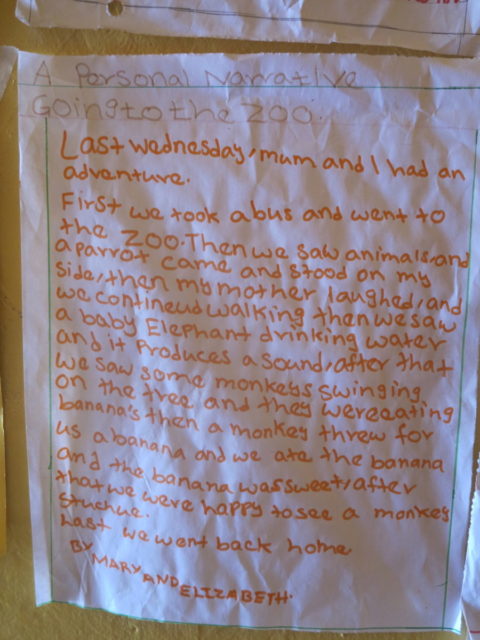 A Personal Narrative
Going to the ZOO.
Last wednesday, mum and I had an
adventure.
First we took a bus and went to
the ZOO. Then we saw animals, and
a parrot came and stood on my
side, then my mother laughed, and
we contineud walking then we saw
a baby Elephant drinking water
and it Produces a sound, after that
we saw some monkeys swinging
on the tree and they were eating
banana's then a monkey threw for
us a banana and we ate the banana
and the banana was sweet, after
that we were happy to see a monkey
stuchue.
Last we went back home
BY MARY AND ELIZABETH.